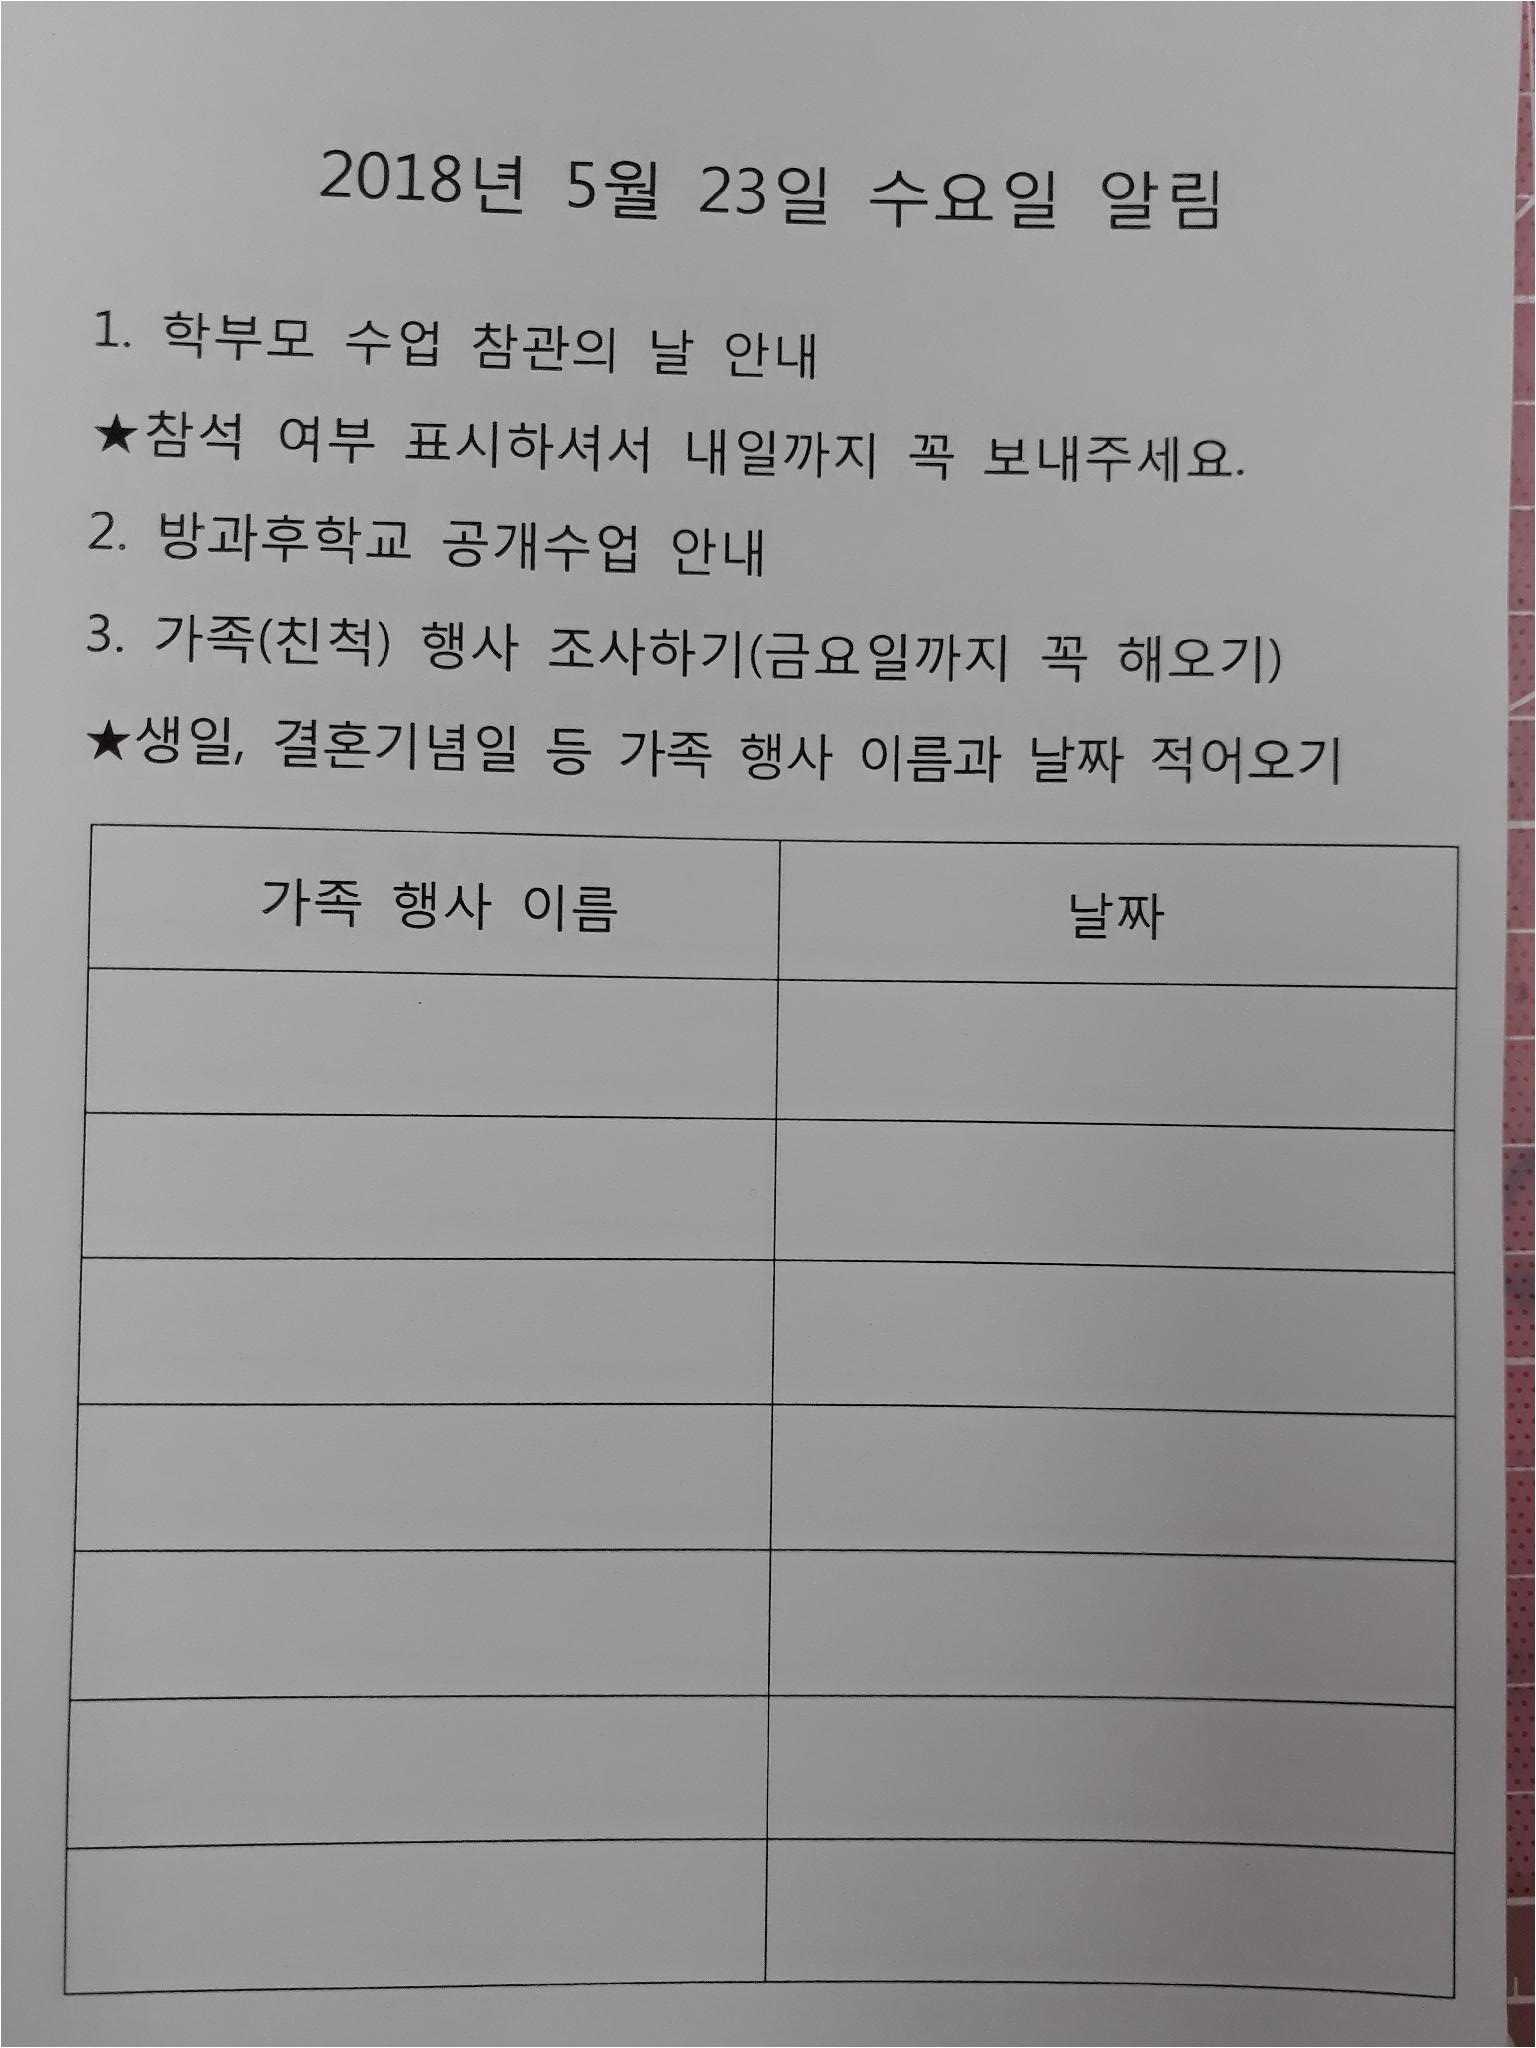 2018년 5월 23일 수요일 알림
1. 학부모 수업 참관의 날 안내
★참석 여부 표시하셔서 내일까지 꼭 보내주세요.
2. 방과후학교 공개수업 안내
3. 가족(친척) 행사 조사하기(금요일까지 꼭 해오기)
★생일, 결혼기념일 등 가족 행사 이름과 날짜 적어오기
가족 행사 이름 날짜